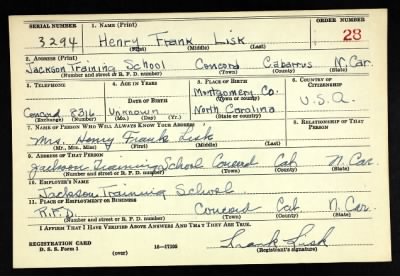 SERIAL NUMBER 1. NAME (Print) ORDER NUMBER
3294 Henry Frank Lisk 28
(First) (Middle) (Last)
2. ADDRESS (Print)
Jackson Training School Concord Cabarrus N. Car.
(Number and street or R. F. D. number) (Town) (County) (State)
3. TELEPHONE 4. AGE IN YEARS 5. PLACE OF BIRTH 6. COUNTRY OF CITIZENSHIP
Montgomery Co.
DATE OF BIRTH (Town or county)
Concord 8316 Unknown North Carolina U.S.A.
(Exchange) (Number) (Mo.) (Day) (Yr.) (State or country)
7. NAME OF PERSON WHO WILL ALWAYS KNOW YOUR ADDRESS 8. RELATIONSHIP OF THAT PERSON
Mrs. Henry Frank Lisk
(Mr., Mrs., Miss) (First) (Middle) (Last)
9. ADDRESS OF THAT PERSON
Jackson Training School Concord Cab N. Car.
(Number and street or R. F. D. number) (Town) (County) (State)
10. EMPLOYER'S NAME
Jackson Training School
11. PLACE OF EMPLOYMENT OR BUSINESS
R.F.D. Concord Cab N. Car.
(Number and street or R. F. D. number) (Town) (County) (State)
I AFFIRM THAT I HAVE VERIFIED ABOVE ANSWERS AND THAT THEY ARE TRUE.
REGISTRATION CARD
D. S. S. Form 1 16-17105 Frank Lisk
(over) (Registrant's signature)